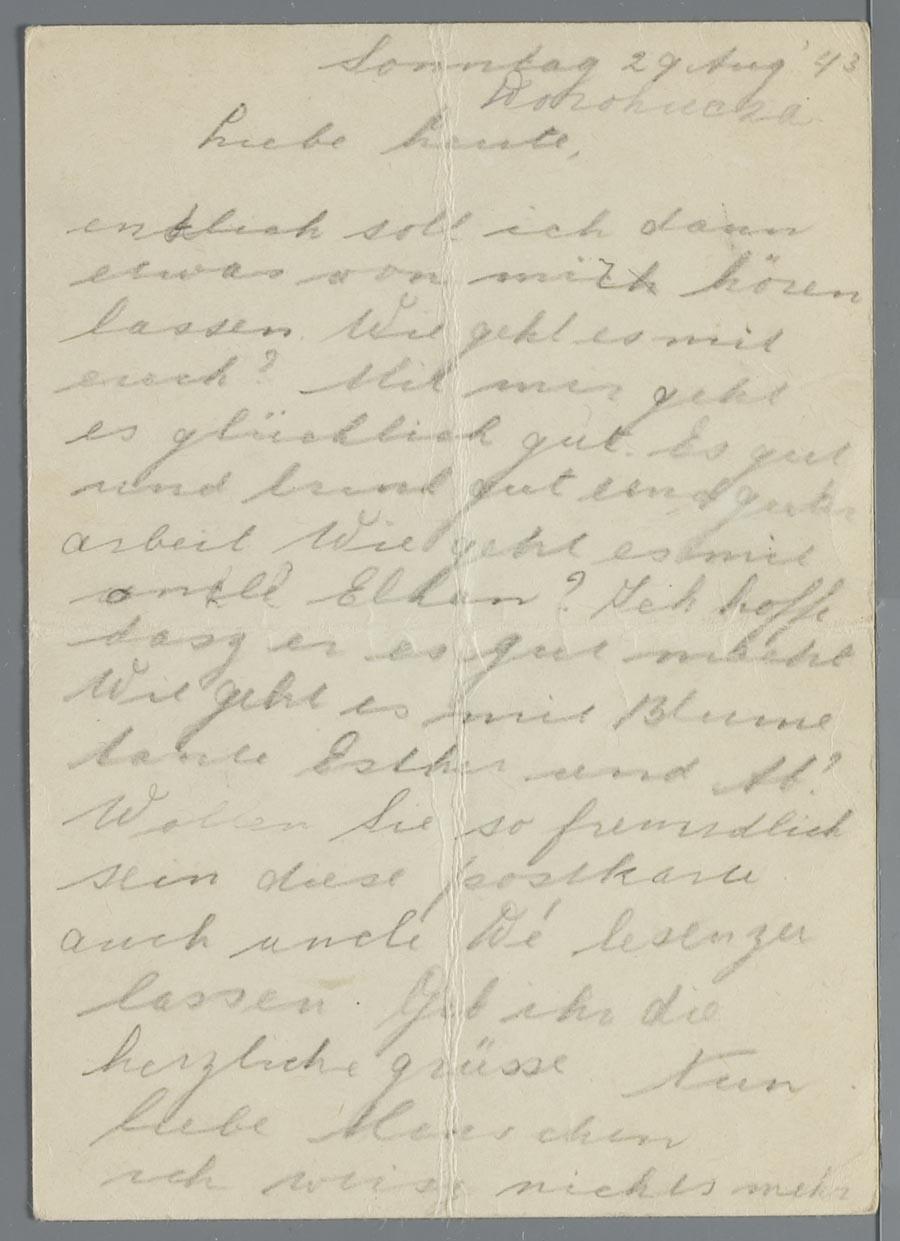 Sonntag 29 Aug '43
Dorohucza
Liebe Leute,
endlich soll ich dann
etwas von mich hören
lassen. Wie geht es mit
euch? Mit mir geht
es glücklich gut. Es gut
und gut und gute
arbeit Wie geht es mit
Elhan? Ich hoffe
dasz er es gut macht
Wie geht es mit Blume
tante Esther und Ab?
Wollen Sie so freundlich
sein diese postkarte
auch uncle Wé lesen zu
lassen. Geb ihr die
herzliche grüsse Nun
liebe Menschen
ich weisz nichts mehr